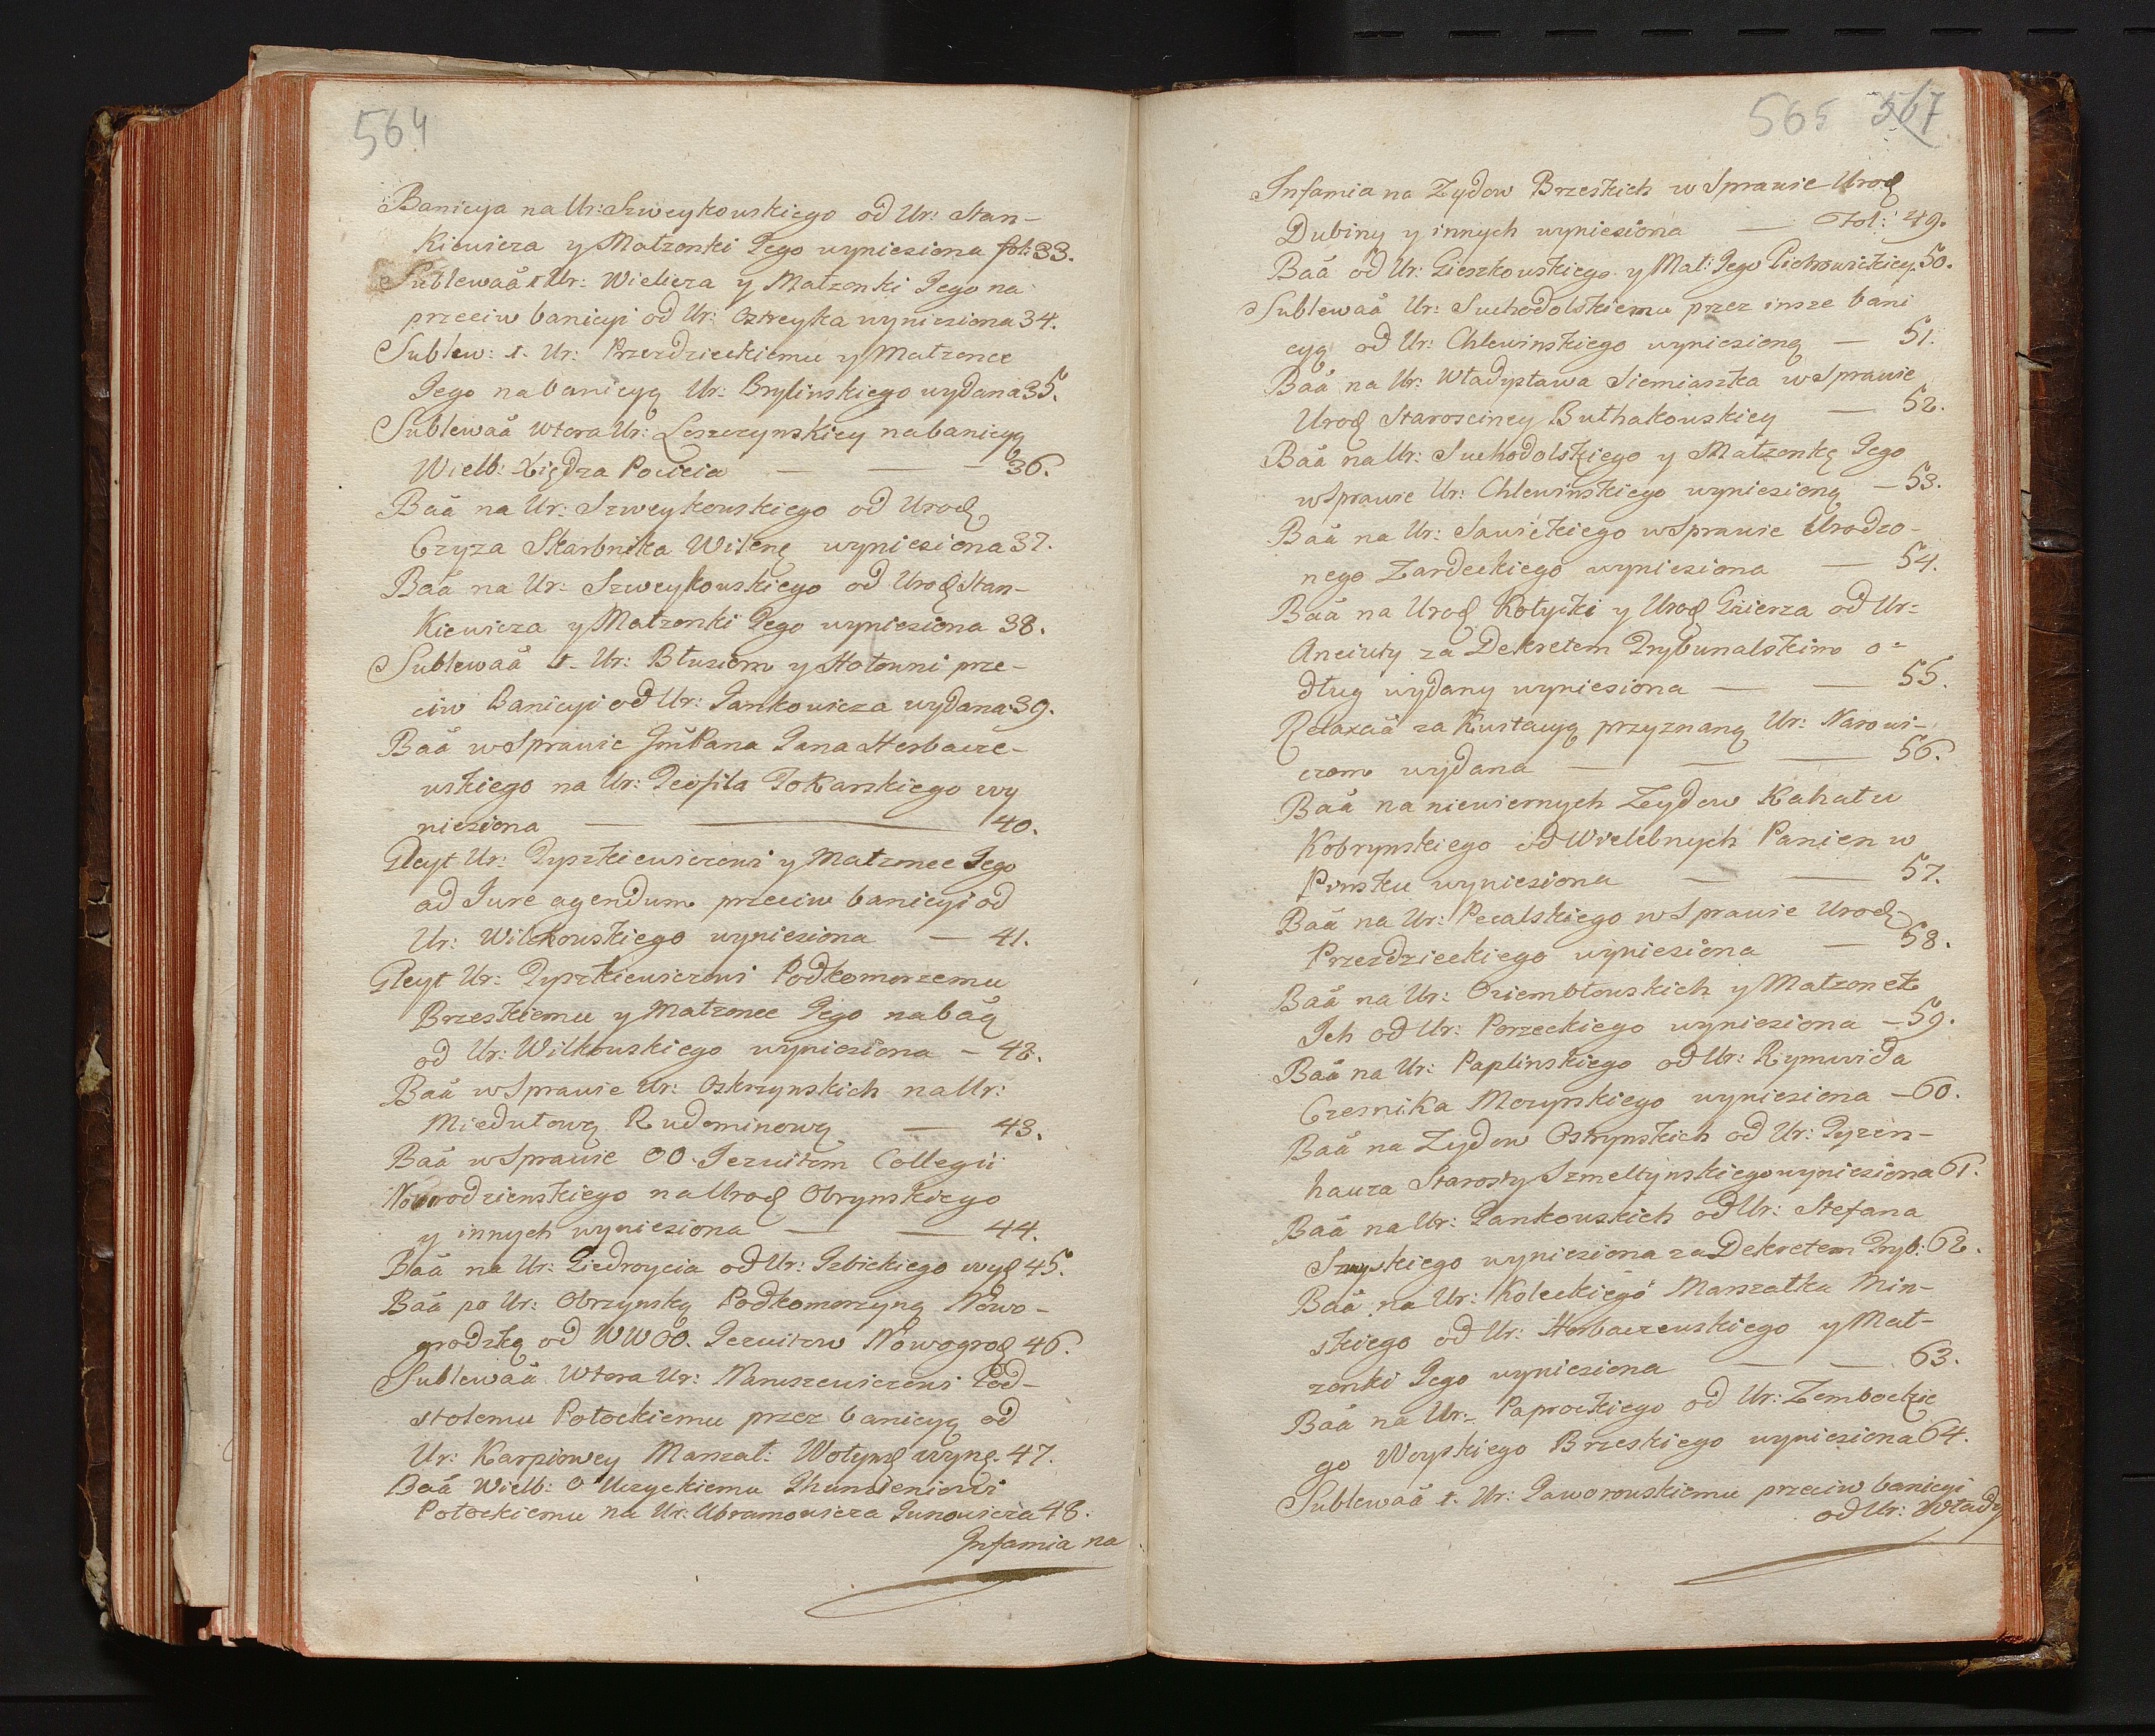 564
Banicya na Ur: Szweykowskiego od Ur: Stan-
kiewicza y Małzonki Jego wyniesiona fol: 33.
Sublewaã 1 Ur: Wielicza y Małzonki Jego na
przeciw banicyi od Ur: Oztreyka wyniesiona 34.
Sublew: 1. Ur: Przezdzieckiemu y Małzonce
Jego na banicyą Ur: Brylinskiego wydana 35.
Sublewaã wtora Ur: Leszczynskiey na banicyą
Wielb: Xiędza Pocieia — — 36.
Baã na Ur: Szweykowskiego od Urod
Czyza Skarbnika Wilenę wyniesiona 37.
Baã na Ur: Szweykowskiego od Urod Stan-
kiewicza y Małzonki Jego wyniesiona 38.
Sublewaã 1. Ur: Błusiom y Hołowni prze-
ciw banicyi od Ur: Jankowicza wydana 39.
Baã w Sprawie Jm̃ Pana Jana Herbacze-
wskiego na Ur: Teofila Tokarskiego wy
niesiona — — 40.
Gleyt Ur: Tyszkiewiczowi y Małzonce Jego
ad Jure agendum przeciw banicyi od
Ur: Wilkowskiego wyniesiona — 41.
Gleyt Ur: Tyszkiewiczowi Podkomorzemu
Brzeskiemu y Małzonce Jego na bãą
od Ur: Wilkowskiego wyniesiona — 42.
Baã w Sprawie Ur: Oskrzynskich na Ur:
Miedutową Rudominową — 43.
Baã w Sprawie OO. Jezuitom Collegii
Noworodzienskiego na Urod Obrynskiego
y innych wyniesiona — — 44.
Baã na Ur: Giedroycia od Ur: Jebickiego wyd 45.
Baã po Ur: Obrzynską Podkomorzyną Nowo-
grodzką od WWOO. Jezuitow Nowogrod 46.
Sublewaã Wtora Ur: Naruszewiczowi Pod-
stolemu Połockiemu przez banicyą od
Ur: Karpiowey Marszał: Wołyns wynę. 47.
Baã Wielb: O Uczyckiemu Ihumieniowi
Połockiemu na Ur: Abramowicza Junowicza 48.
Infamia na
565 567
Infamia na Zydow Brzeskich w Sprawie Urod
Dubiny y innych wyniesiona — Fol: 49.
Baã od Ur: Cieszkowskiego y Mał: Jego Piotrowickiey. 50.
Sublewaã Ur: Suchodolskiemu przez insze bani
cyą od Ur: Chlewinskiego wyniesioną — 51.
Baã na Ur: Władysława Siemiaszka w Sprawie
Urod Starosciney Buthakowskiey — 52.
Baã na Ur: Suchodolskiego y Małzonkę Jego
w Sprawie Ur: Chlewinskiego wyniesioną — 53.
Baã na Ur: Sawickiego w Sprawie Urodzo-
nego Zardeckiego wyniesiona — 54.
Baã na Urod Kołyski y Urod Gzierza od Ur:
Anciuty za Dekretem Trybunalskim o=
dług wydany wyniesiona — — 55.
Relaxaã za Kwitacyą przyznaną Ur: Narowi-
czom wydana — — 56.
Baã na niewiernych Zydow Kahału
Kobrynskiego od Wielebnych Panien w
Pinsku wyniesiona — — 57.
Baã na Ur: Pecalskiego w Sprawie Urod
Przezdzieckiego wyniesiona — 58.
Baã na Ur: Oziembłowskich y Małzonek
Ich od Ur: Porzeckiego wyniesiona — 59.
Baã na Ur: Paplinskiego od Ur: Rymwida
Czesnika Mozyrskiego wyniesiona — 60.
Baã na Zydow Ostrynskich od Ur: Tyzen-
hauza Starosty Szmeltynskiego wyniesiona 61.
Baã na Ur: Jankowskich od Ur: Stefana
wyniesiona za Dekretem Tryb: 62.
Baã na Ur: Koleckiego Marszałka Min-
skiego od Ur: Herbaczewskiego y Mał-
zonki Jego wyniesiona — — 63.
Baã na Ur: Paprockiego od Ur: Zembockie
go Woyskiego Brzeskiego wyniesiona 64.
Sublewaã 1. Ur: Jaworowskiemu przeciw banicyi
od Ur: Włady